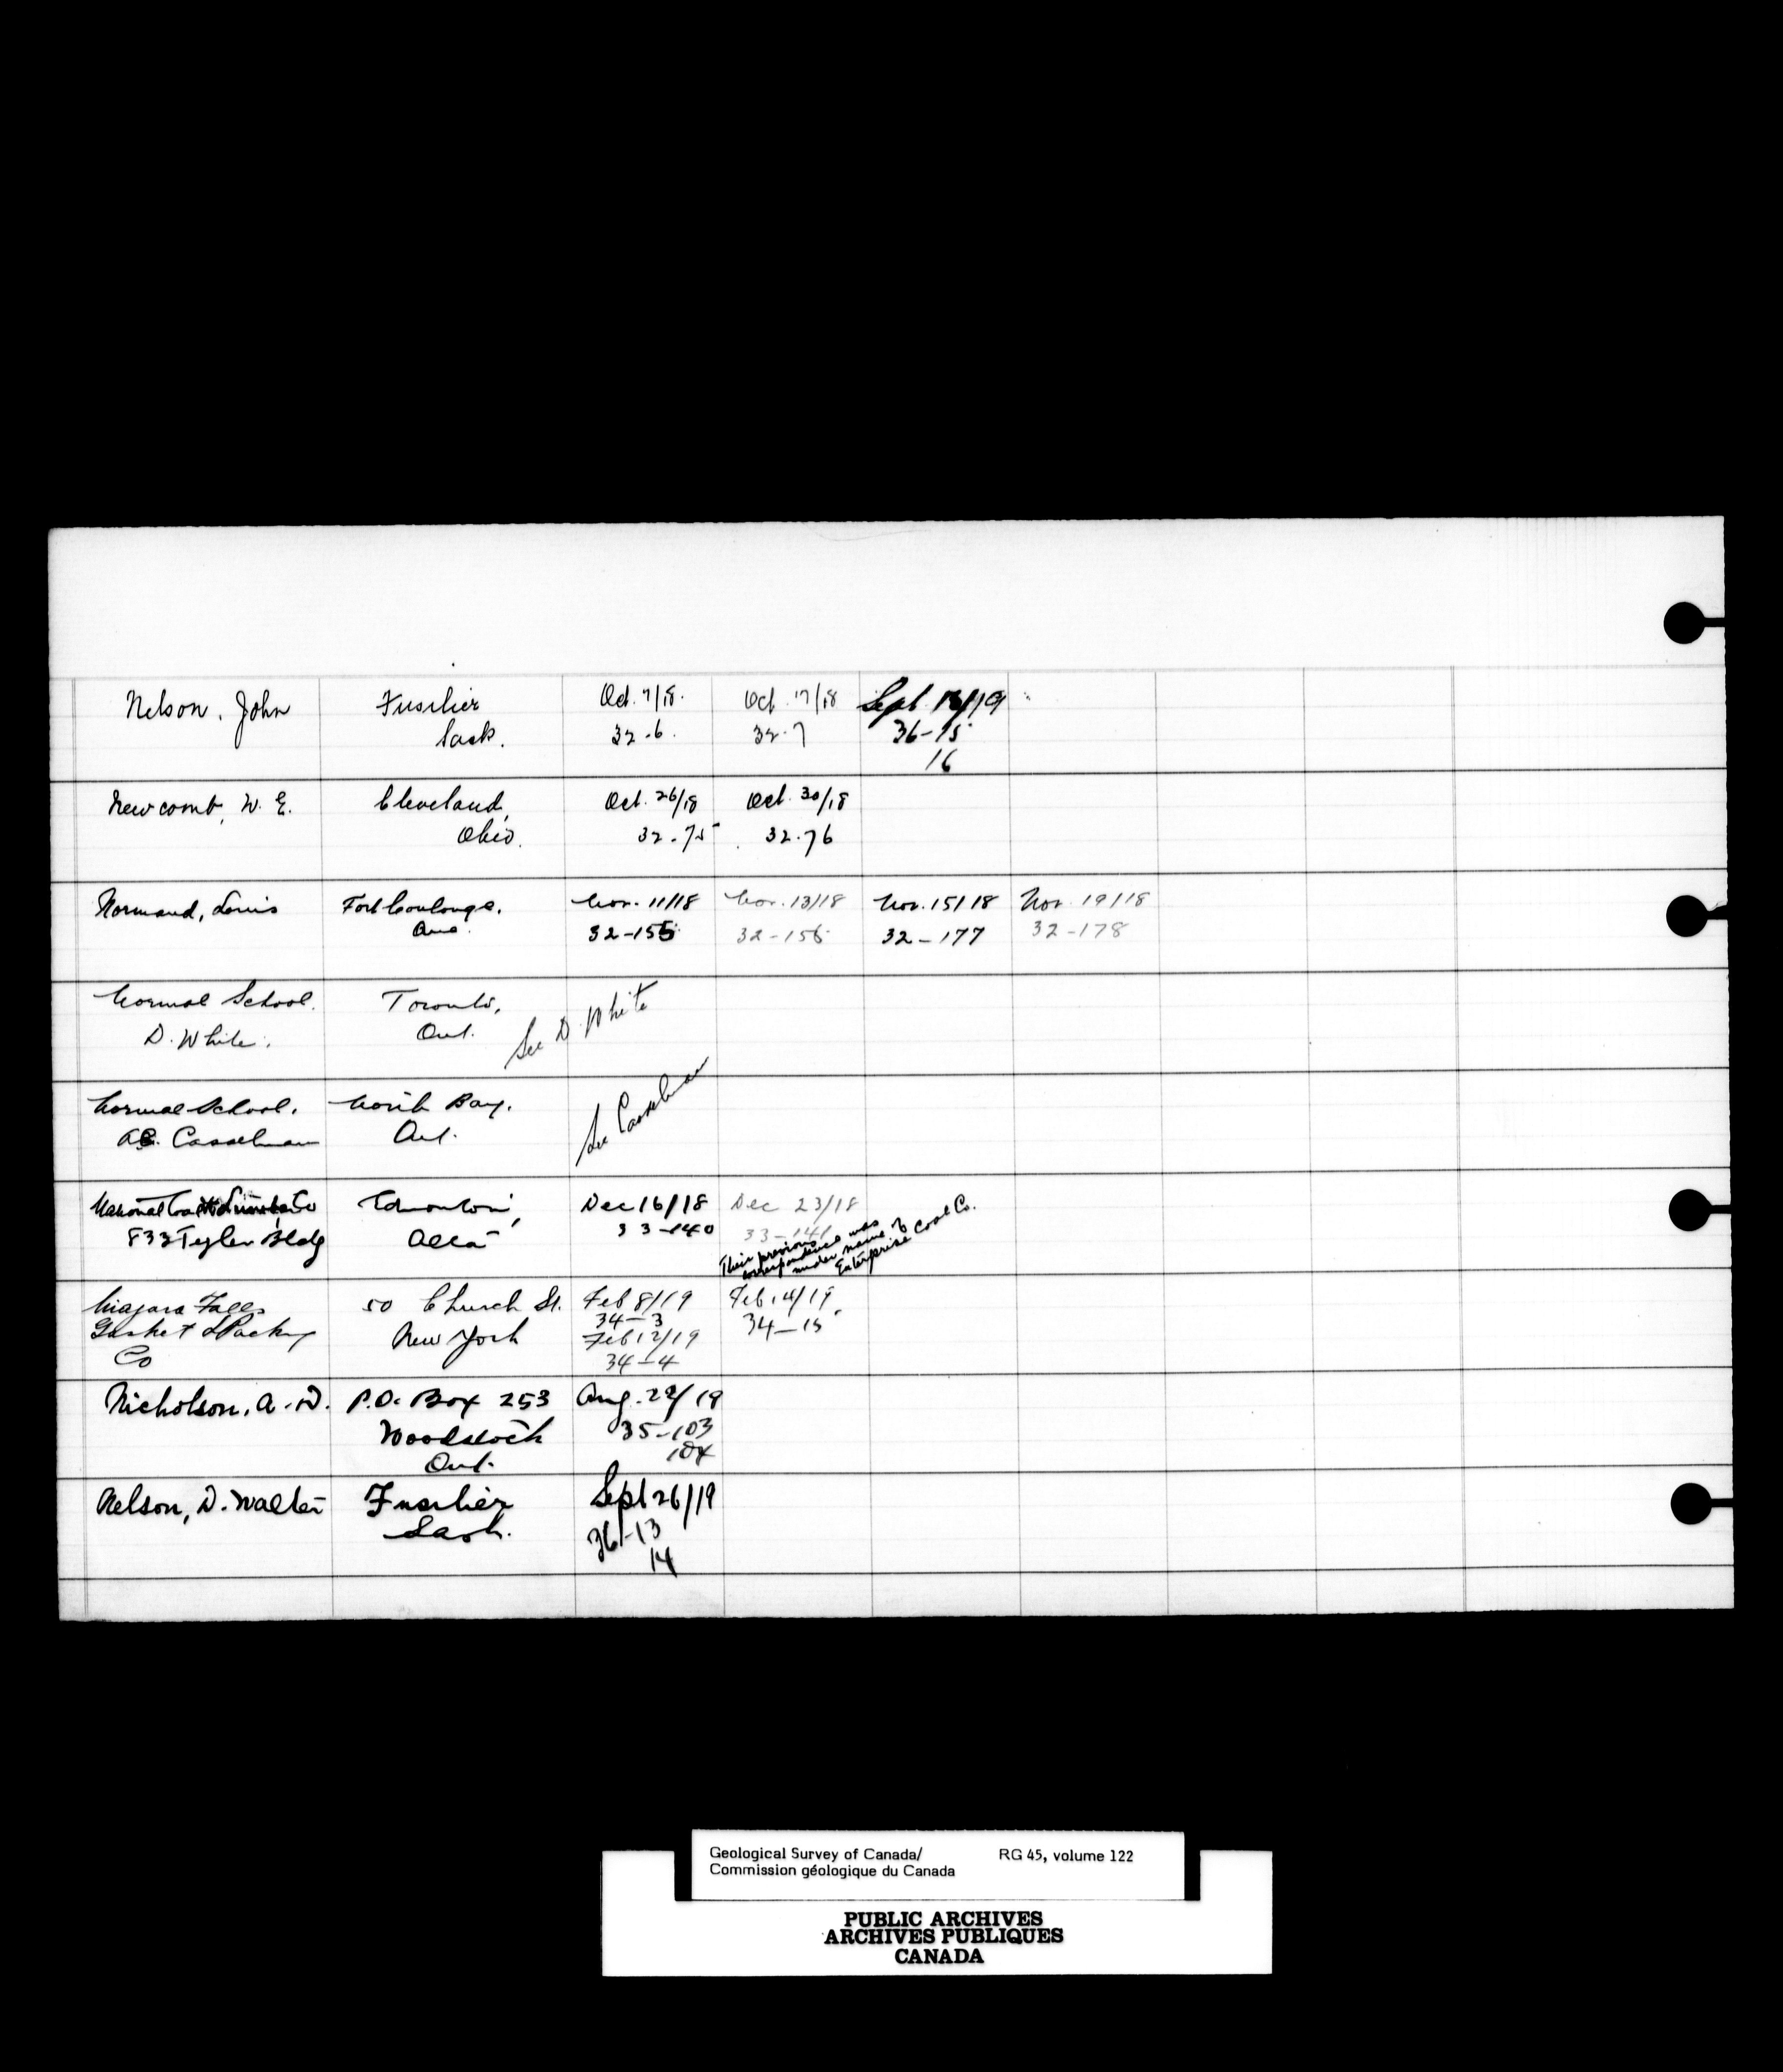 Nelson, John Fusilier Oct. 7/18. Oct. 17/18 Sept. /19
Sask. 32-6. 32-7 36-15
16
Newcomb, W. E. Cleveland, Oct. 26/18 Oct. 30/18
Ohio. 32-75 32-76
Normand, Louis Fort Coulonge, Nov. 11/18 Nov. 13/18 Nov. 15/18 Nov. 19/18
Que. 32-155 32-156 32-177 32-178
Normal School. Toronto,
D. White. Ont. See D. White
Normal School. North Bay.
Casselman Ont. See Casselman
National Coal Co Edmonton, Dec 16/18 Dec 23/18
833 Tegler Bldg Alta 33-140 33-141
Their previous
correspondence was
under name of
Enterprise Coal Co.
Niagara Falls 50 Church St. Feb 8/19 Feb 14/19
Gasket & Packing New York 34-3 34-15
Co Feb 12/19
34-4
Nicholson, A. D. P.O. Box 253 Aug. /19
Woodstock 35-103
Ont. 104
Nelson, D. Walter Fusilier Sept 26/19
Sask. 36-13
14
Geological Survey of Canada/ RG 45, volume 122
Commission géologique du Canada
PUBLIC ARCHIVES
ARCHIVES PUBLIQUES
CANADA